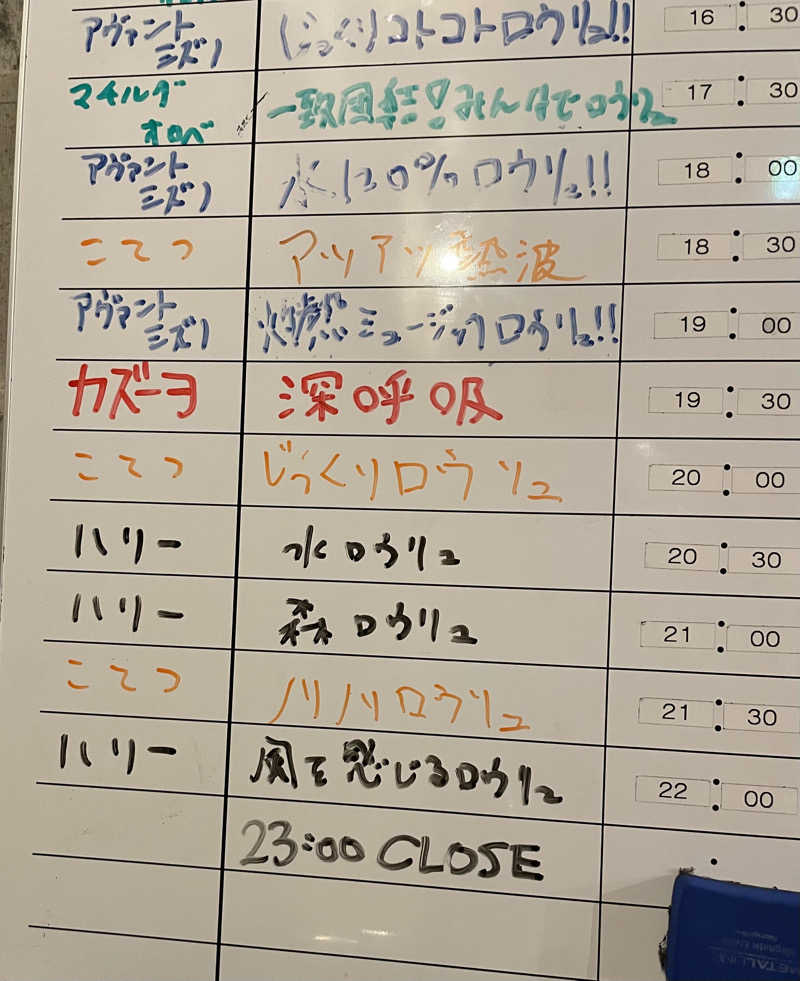 アヴァント
ミズノ
じっくりコトコトロウリュ!!
16:30
マチルダ
オロベ
一致団結!みんなでロウリュ
17:30
アヴァント
ミズノ
水120%ロウリュ!!
18:00
こてつ
アツアツ熱波
18:30
アヴァント
ミズノ
爆燃ミュージックロウリュ!!
19:00
カズーヨ
深呼吸
19:30
こてつ
じっくりロウリュ
20:00
ハリー
水ロウリュ
20:30
ハリー
森ロウリュ
21:00
こてつ
ノリノリロウリュ
21:30
ハリー
風を感じるロウリュ
22:00
23:00 CLOSE